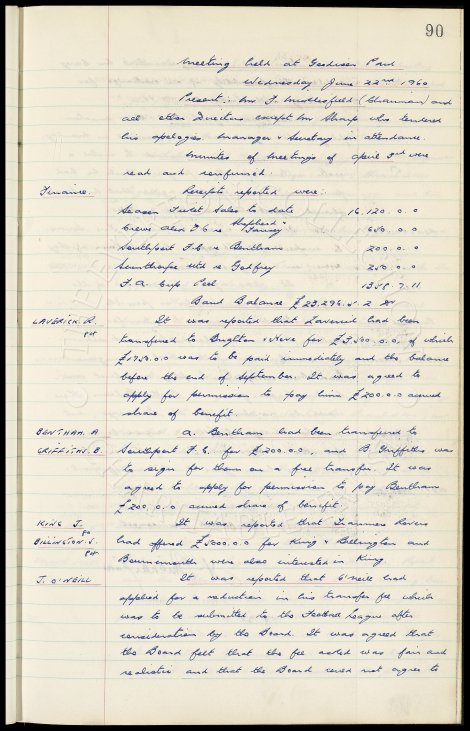 90
Meeting held at Goodison Park
Wednesday June 22nd 1960
Present:- Mr F. Micklesfield (Chairman) and
all other Directors except Mr Sharp who tendered
his apologies. Manager & Secretary in attendance.
Minutes of Meetings of April 3rd were
read and confirmed.
Finance. Receipts reported were:
Season Ticket Sales to date 16.120.0.0
Crewe Alex F.C. re Shepherd & 650.0.0
Southport F.C. re Bentham 200.0.0
Scunthorpe Utd re Godfrey 250.0.0
F.A. Cup Pool 1358.7.11
Bank Balance £23,296.5.2
LAVERICK R. It was reported that Laverick had been
transferred to Brighton & Hove for £3,500.0.0, of which
£1750.0.0 was to be paid immediately and the balance
before the end of September. It was agreed to
apply for permission to pay him £200.0.0 accrued
share of benefit.
BENTHAM. A A. Bentham had been transferred to
GRIFFITHS. B. Southport F.C. for £200.0.0, and B Griffiths was
to sign for them on a free transfer. It was
agreed to apply for permission to pay Bentham
£200.0.0 accrued share of benefit.
KING J. It was reported that Tranmere Rovers
BILLINGTON. S. had offered £5000.0.0 for King & Billington and
Bournemouth were also interested in King.
J. O'NEILL It was reported that O'Neill had
applied for a reduction in his transfer fee which
was to be submitted to the Football League after
consideration by the Board. It was agreed that
the Board felt that the fee asked was fair and
realistic and that the Board could not agree to